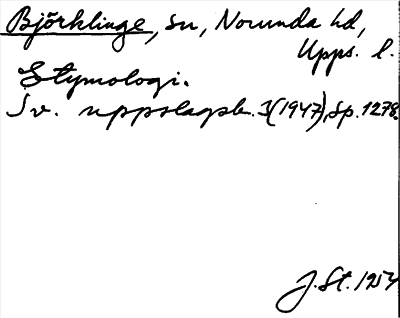 Björklinge, sn, Norunda hd,
Upps. l.
Etymologi.
Sv. uppslagsb. 3 (1947), sp. 1278.
J. St. 1954